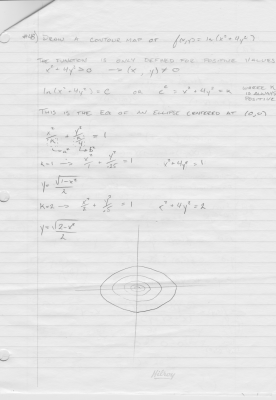 #48) DRAW A CONTOUR MAP OF f(x,y) = ln(x²+4y²)
THE FUNCTION IS ONLY DEFINED FOR POSITIVE VALUES
x²+4y² ≥ 0 → (x, y) ≠ 0
ln(x²+4y²) = C OR e^c = x²+4y² = k WHERE k IS ALWAYS POSITIVE
THIS IS THE EQ OF AN ELLIPSE CENTERED AT (0,0)
x²/k + y²/k/4 = 1
k=1 → x²/1 + y²/.25 = 1 x²+4y² = 1
y = √(1-x²)/2
k=2 → x²/2 + y²/.5 = 1 x²+4y² = 2
y = √(2-x²)/2